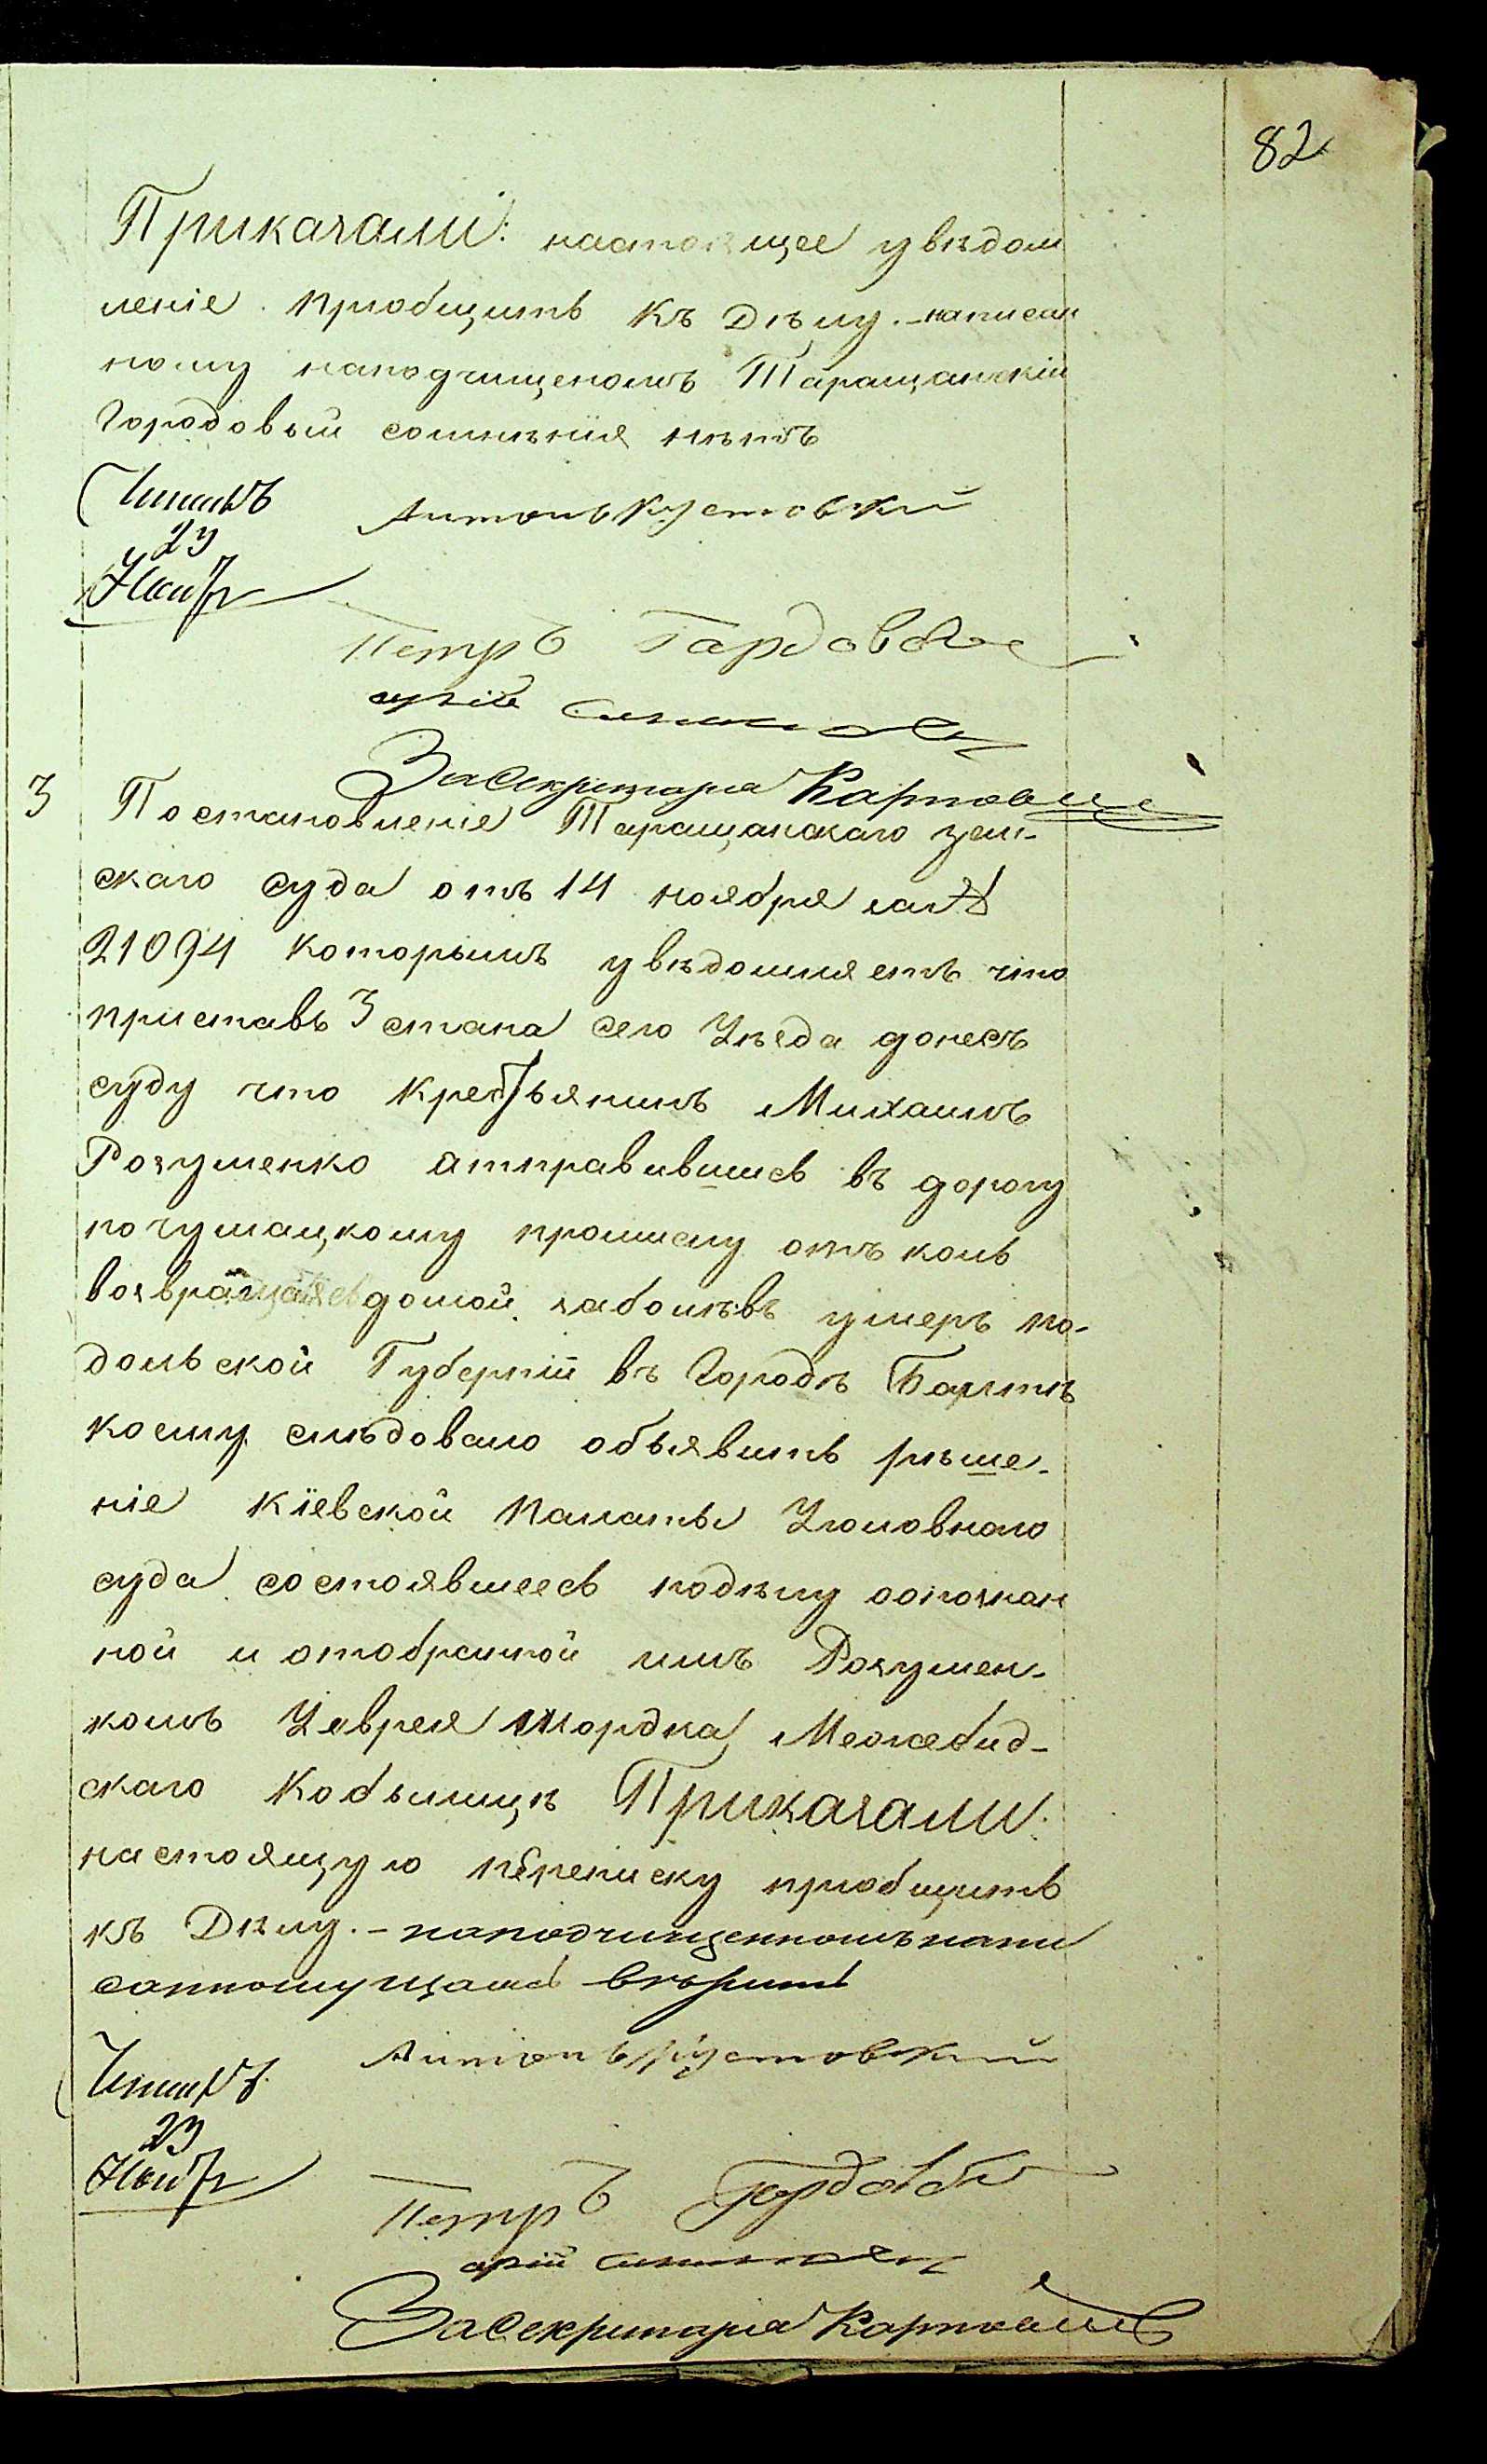 82
Приказали: настоящее уведом
леніе пріобщить къ Дѣлу. – написан
ному наподчищеномъ Таращанскій
Городовый сомнѣнія нѣтъ
Читалъ
23
Нояб
Антонъ Кустовскій
Петръ Гардовой
За Секритаря Карповичъ
3 Постановленіе Таращанскаго зем-
скаго суда отъ 14 ноября за №
21094 которымъ увѣдомляетъ что
приставъ 3 стана сего Уѣзда донесъ
суду что Крестьянинъ Михаилъ
Розуменко атправившись въ дорогу
почумацкому промыслу отъ коль
возвращаясь домой заболѣвъ умеръ по-
дольской Губерніи въ Городѣ Балтѣ
коему слѣдовало объявить рѣше-
ніе Кіевской Палаты Уголовнаго
суда состоявшеесь подѣлу оопознан
ной и отобранной имъ Розумен-
комъ Уеврея Мордка Межебид-
скаго Кобылицѣ Приказали:
настоящую переписку пріобщить
къ Дѣлу. – наподчищенномъ напи
санному вѣрить
Читалъ
23
Нояб
Антонъ Кустовскій
Петръ Гордовой
За Секритаря Карповичъ